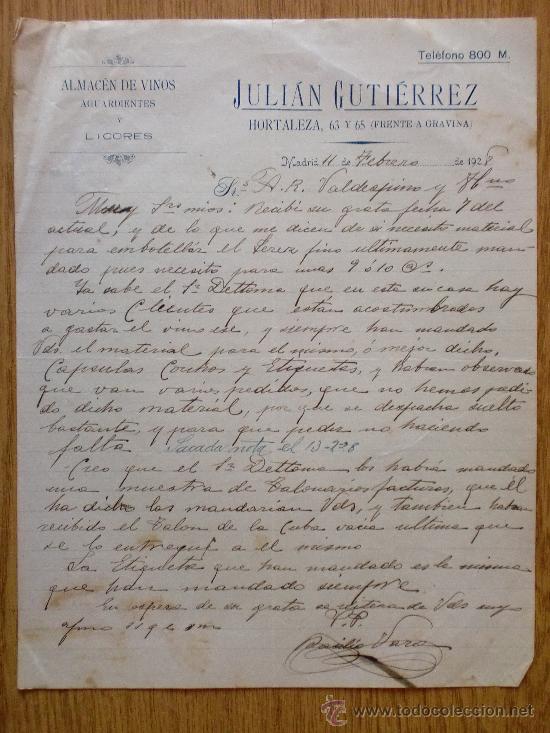 Teléfono 800 M.
ALMACÉN DE VINOS
AGUARDIENTES
Y
LICORES
JULIÁN GUTIÉRREZ
HORTALEZA, 63 Y 65 (FRENTE A GRAVINA)
Madrid 11 de Febrero de 1928
Srs A. R. Valdespino y Hno
Muy Srs mios: Recibi su grata fecha 7 del
actual, y de lo que me dicen de si necesito material
para embotellar el Jerez fino ultimamente man-
dado pues necesito para unas 9 ó 10 @s.
Ya sabe el Sr Dettoma que en esta su casa hay
varios Clientes que estan acostumbrados
a gastar el vino ese, y siempre han mandado
Vds. el material para el mismo, ó mejor dicho,
Capsulas Corchos y Etiquetas, y habran observado
que van varios pedidos, que no hemos pedi-
do dicho material, por que se despacha suelto
bastante, y para que pedir no haciendo
falta Sacada nota el 13-2-28
Creo que el Sr Dettoma les habra mandado
una muestra de Talonarios facturas, que él
ha dicho las mandarian Vds, y tambien habran
recibido el Talon de la Cuba vacia ultima que
se lo entregué a el mismo
La Etiqueta que han mandado es la misma
que han mandado siempre.
En espera de su grata se reitera de Vds muy
afmo ss q e s m
P. P.
Basilio Vara
© todocoleccion
www.todocoleccion.net